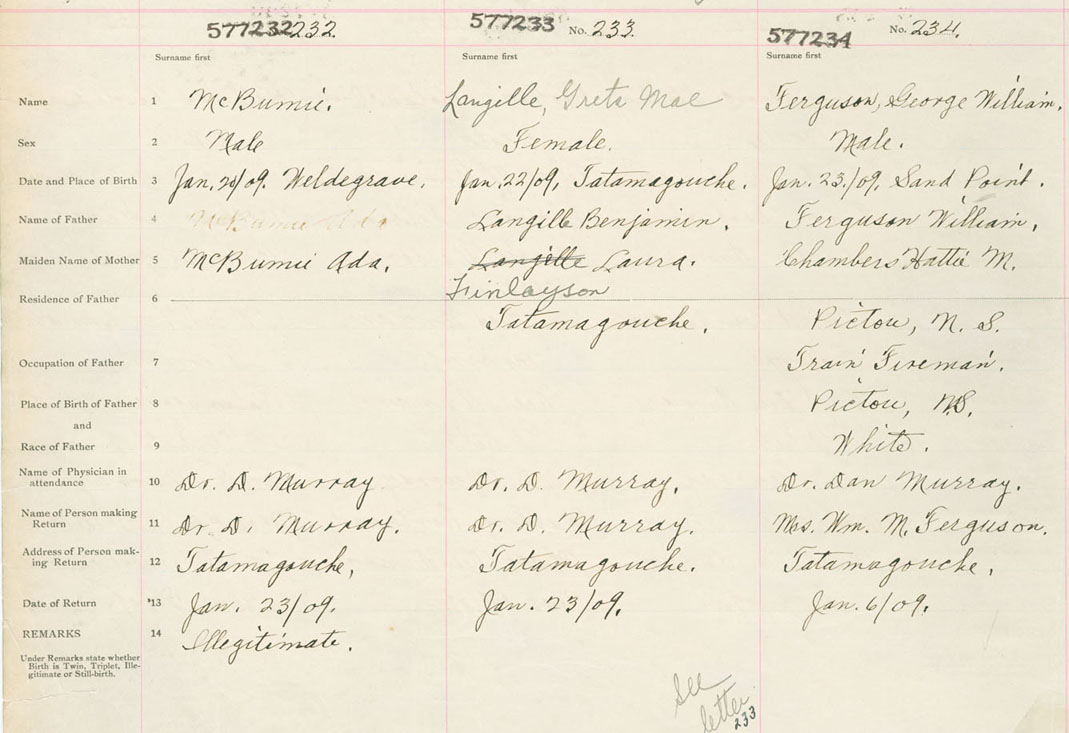 577232 232. 577233 No. 233. 577234 No. 234.
Surname first Surname first Surname first
Name 1 McBurnie. Langille, Greta Mae Ferguson, George William.
Sex 2 Male Female. Male.
Date and Place of Birth 3 Jan. /09. Weldegrave. Jan. 22/09, Tatamagouche. Jan. 23./09, Sand Point.
Name of Father 4 McBurnie Ada Langille Benjamin. Ferguson William.
Maiden Name of Mother 5 McBurnie Ada. Langille Laura. Chambers Hattie M.
Finlayson
Residence of Father 6
Tatamagouche. Pictou, N. S.
Occupation of Father 7 Train Fireman.
Place of Birth of Father 8 Pictou, N.S.
and
Race of Father 9 White.
Name of Physician in
attendance 10 Dr. D. Murray Dr. D. Murray. Dr. Dan Murray.
Name of Person making
Return 11 Dr. D. Murray. Dr. D. Murray. Mrs. Wm. M. Ferguson.
Address of Person mak-
ing Return 12 Tatamagouche, Tatamagouche. Tatamagouche.
Date of Return 13 Jan. 23/09. Jan. 23/09. Jan. 6/09.
REMARKS 14 Illegitimate.
Under Remarks state whether
Birth is Twin, Triplet, Ille-
gitimate or Still-birth.
See
letter
233